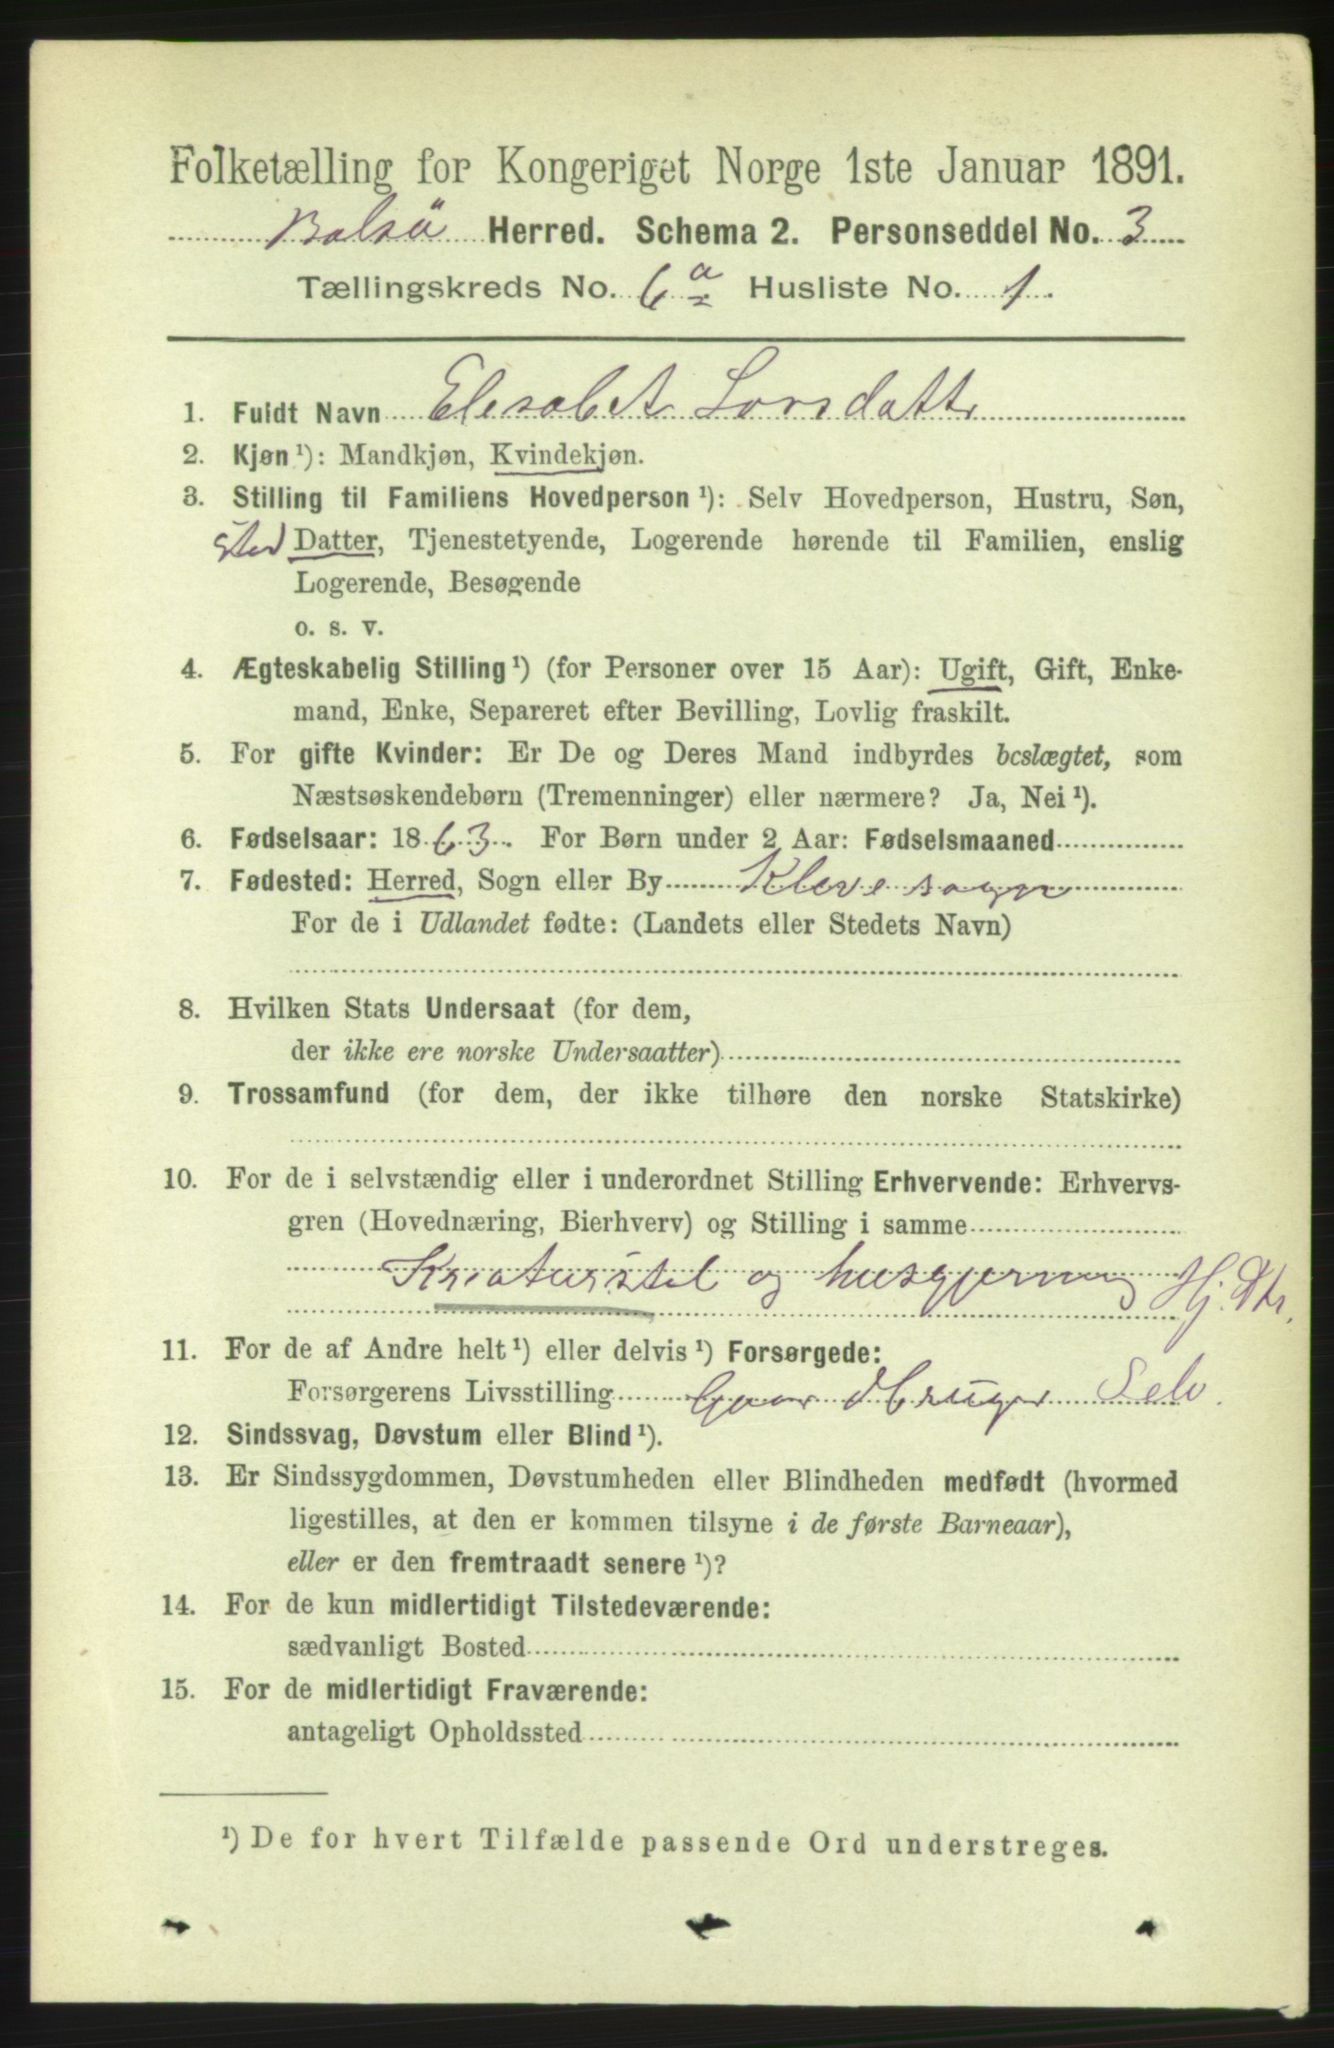 Folketælling for Kongeriget Norge 1ste Januar 1891.
Bolsö Herred. Schema 2. Personseddel No. 3
Tællingskreds No. 6a Husliste No. 1.
1. Fuldt Navn Elisabet Larsdatter
2. Kjøn ¹): Mandkjøn, Kvindekjøn.
3. Stilling til Familiens Hovedperson ¹): Selv Hovedperson, Hustru, Søn,
sted Datter, Tjenestetyende, Logerende hørende til Familien, enslig
Logerende, Besøgende
o. s. v.
4. Ægteskabelig Stilling ¹) (for Personer over 15 Aar): Ugift, Gift, Enke-
mand, Enke, Separeret efter Bevilling, Lovlig fraskilt.
5. For gifte Kvinder: Er De og Deres Mand indbyrdes beslægtet, som
Næstsøskendebørn (Tremenninger) eller nærmere? Ja, Nei ¹).
6. Fødselsaar: 1863. For Børn under 2 Aar: Fødselsmaaned
7. Fødested: Herred, Sogn eller By Kleve sogn
For de i Udlandet fødte: (Landets eller Stedets Navn)
8. Hvilken Stats Undersaat (for dem,
der ikke ere norske Undersaatter)
9. Trossamfund (for dem, der ikke tilhøre den norske Statskirke)
10. For de i selvstændig eller i underordnet Stilling Erhvervende: Erhvervs-
gren (Hovednæring, Bierhverv) og Stilling i samme
Kreaturstel og husgjerning Hj. Dtr.
11. For de af Andre helt ¹) eller delvis ¹) Forsørgede:
Forsørgerens Livsstilling Gaardbruger Selv.
12. Sindssvag, Døvstum eller Blind ¹).
13. Er Sindssygdommen, Døvstumheden eller Blindheden medfødt (hvormed
ligestilles, at den er kommen tilsyne i de første Barneaar),
eller er den fremtraadt senere ¹)?
14. For de kun midlertidigt Tilstedeværende:
sædvanligt Bosted
15. For de midlertidigt Fraværende:
antageligt Opholdssted
¹) De for hvert Tilfælde passende Ord understreges.